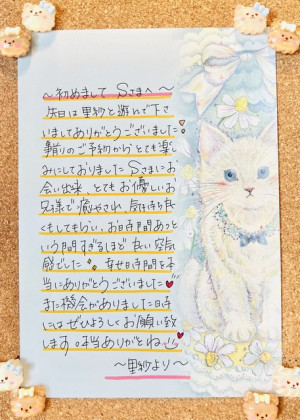 ～初めまして Sさまへ～
先日は里紗と遊んで下さ
いましてありがとうございました
事前のご予約からとても楽し
みにしておりました Sさまにお
会い出来、とてもお優しいお
兄様で癒やされ、気持ち良
くもしてもらい、お時間あっと
いう間すぎるほど良い空気
感でした 幸せ時間を本
当にありがとうございました
また機会がありました時
にはぜひよろしくお願い致
します。本当ありがとね
～里紗より～